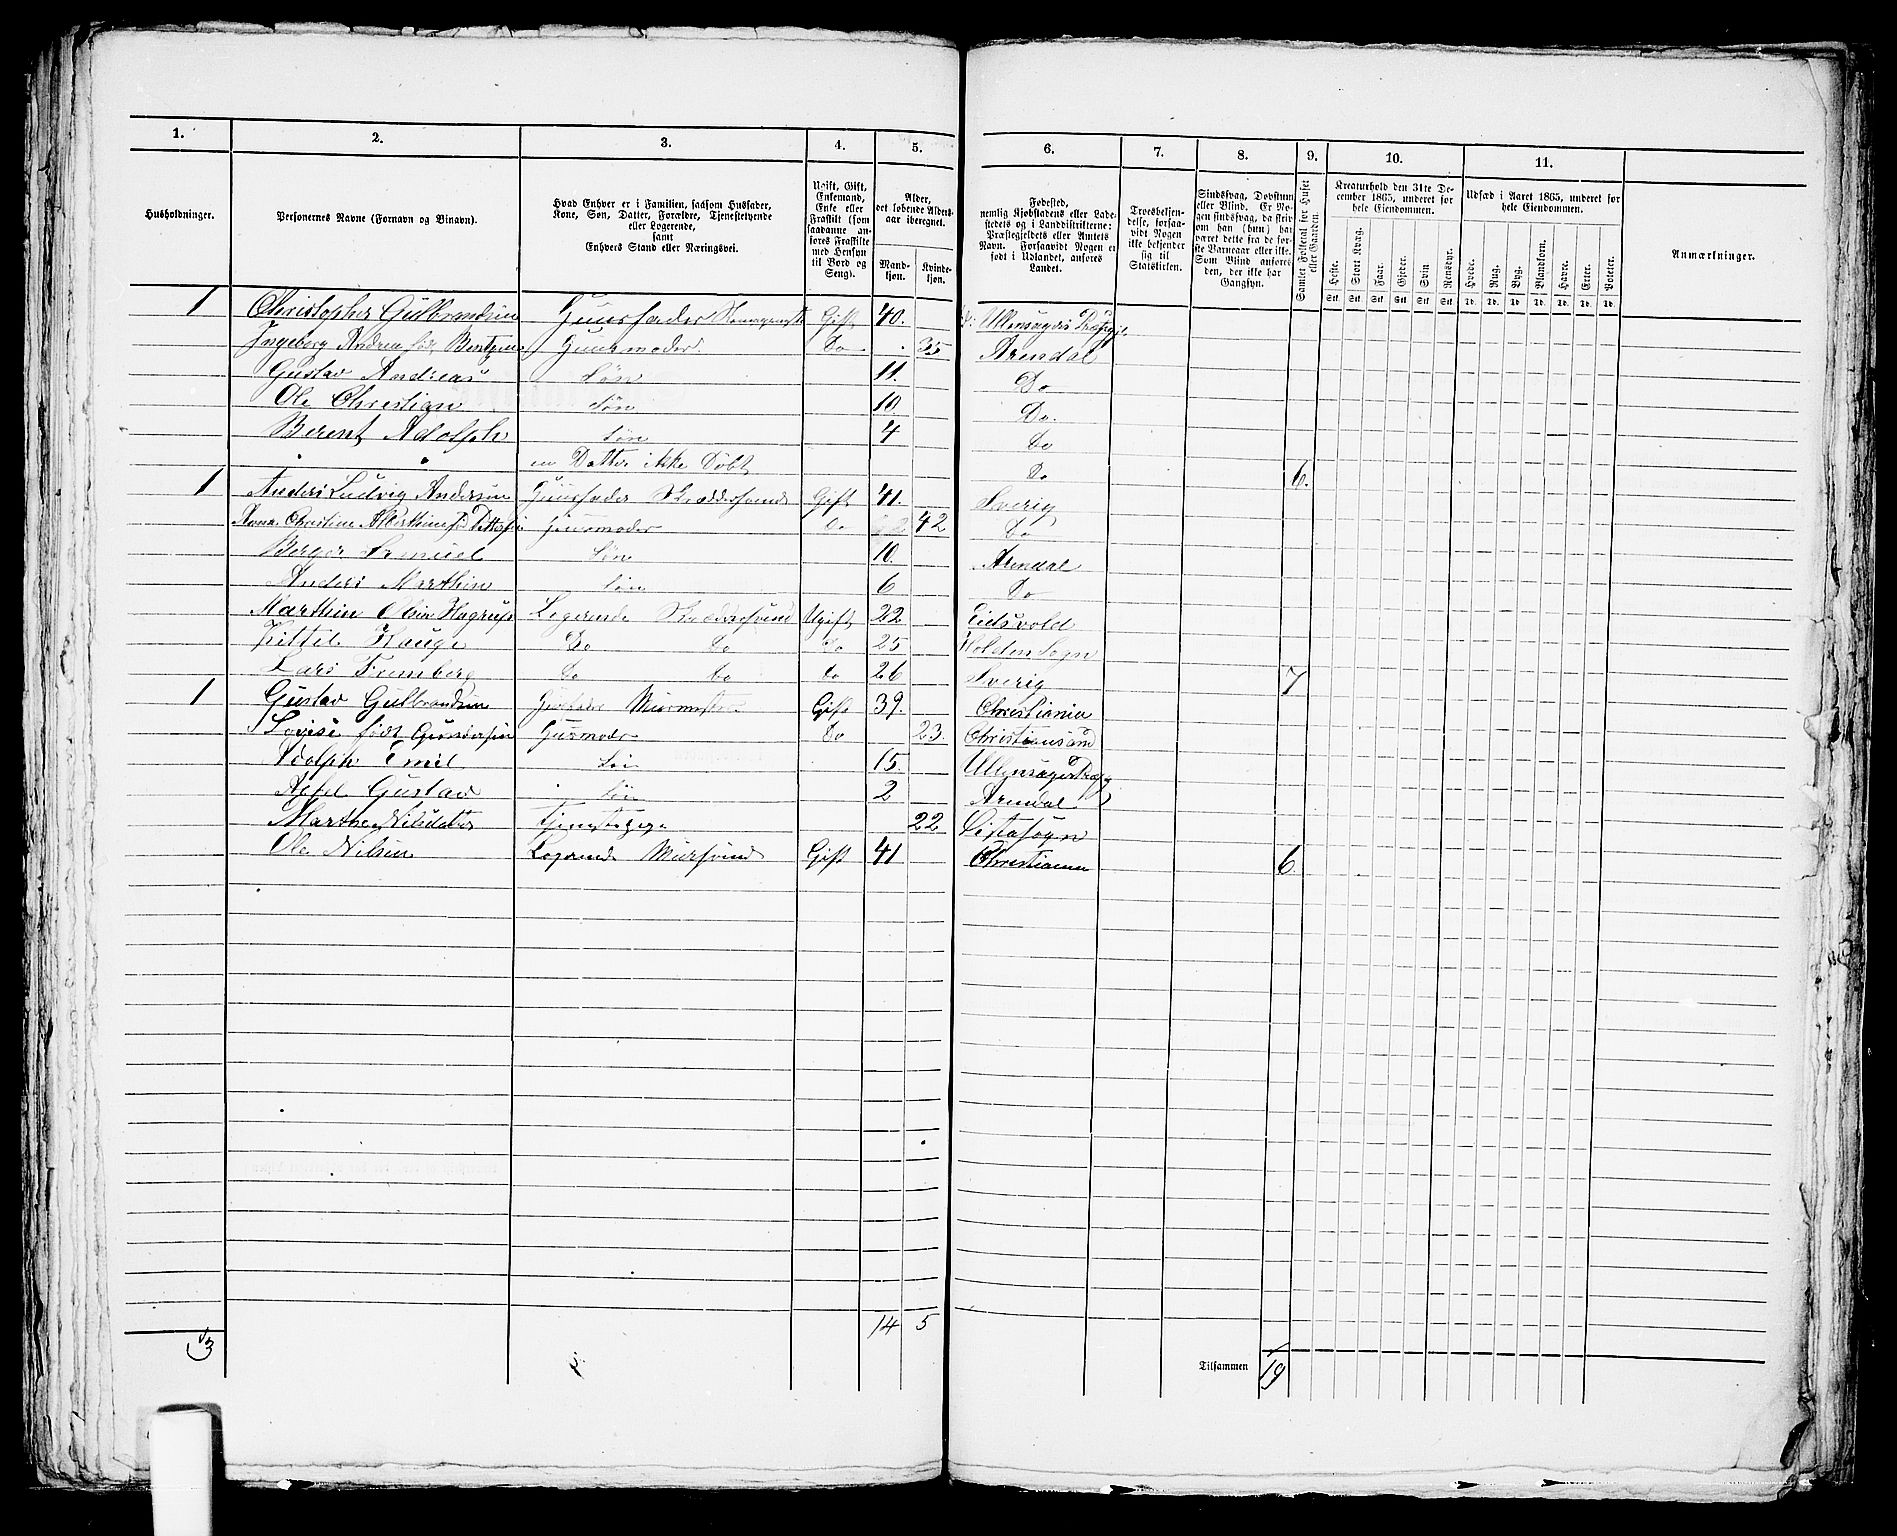 1. 2. 3. 4. 5. 6. 7. 8. 9. 10. 11.
Husholdninger.
Personernes Navne (Fornavn og Binavn).
Hvad Enhver er i Familien, saasom Husfader,
Kone, Søn, Datter, Forældre, Tjenestetyende
eller Logerende,
samt
Enhvers Stand eller Næringsvei.
Ugift, Gift,
Enkemand,
Enke eller
Fraskilt (som
saadanne an-
føres Fraskilte
med Hensyn
til Bord og
Seng).
Alder,
det løbende Alders-
aar iberegnet.
Mand-
kjøn.
Kvinde-
kjøn.
Fødested,
nemlig Kjøbstadens eller Lade-
stedets og i Landdistrikterne:
Præstegjeldets eller Amtets
Navn. Forsaavidt Nogen er
født i Udlandet, anføres
Landet.
Troesbekjen-
delse, forsaa-
vidt Nogen
ikke bekjender
sig til
Statskirken.
Sindssvag, Døvstum
eller Blind. Er No-
gen sindssvag, da skriv
om han (hun) har
været dette fra de før-
ste Barneaar eller ikke.
Som Blind anføres
den, der ikke har
Gangsyn.
Samlet Folketal for Huset
eller Gaarden.
Kreaturhold den 31te De-
cember 1865, underet for
hele Eiendommen.
Heste. Stort Kvæg. Faar. Gjeder. Svin. Rensdyr.
Stk. Stk. Stk. Stk. Stk. Stk.
Udsæd i Aaret 1865, underet for
hele Eiendommen.
Hvede. Rug. Byg. Blandkorn. Havre. Erter. Poteter.
Td. Td. Td. Td. Td. Td. Td.
Anmærkninger.
1 Christopher Gulbrandsen Huusfader Gift 40. Ullensagers Præstgj
Ingeborg Andrea fød Bentzen Huusmoder Do 35 Arendal
Gustav Andreas Søn 11. Do
Ole Christian Søn 10. Do.
Berent Adolph Søn 4 Do
en Datter ikke Døbt Do 6.
1 Anders Ludvig Andersen Huusfader Skræddersvend Gift 41. Sverig
Anna Christine Albertine fd Huusmoder Do 42 Do
Berger Samuel Søn 10. Arendal
Anders Marthin Søn 6 Do
Marthin Olsen Logerende Skræddersvend Ugift 22 Eidsvold
Kittel Hauge Do Do Do 25 Holden Sogn
Lars Do Do Do 26 Sverig 7
1 Gustav Gulbrandsen Murmester Gift 39. Christiania
Lovise født Gundersen Husmoder Do 23. Christiansand
Adolph Emil Søn 15. Ullensager Præstg
Axel Gustav Søn 2 Arendal
Marthe Nilsdatter Tjenestepige 22
Ole Nilsen Logerende Mursvend Gift 41 Christiania 6
3 14 5
Tilsammen 19